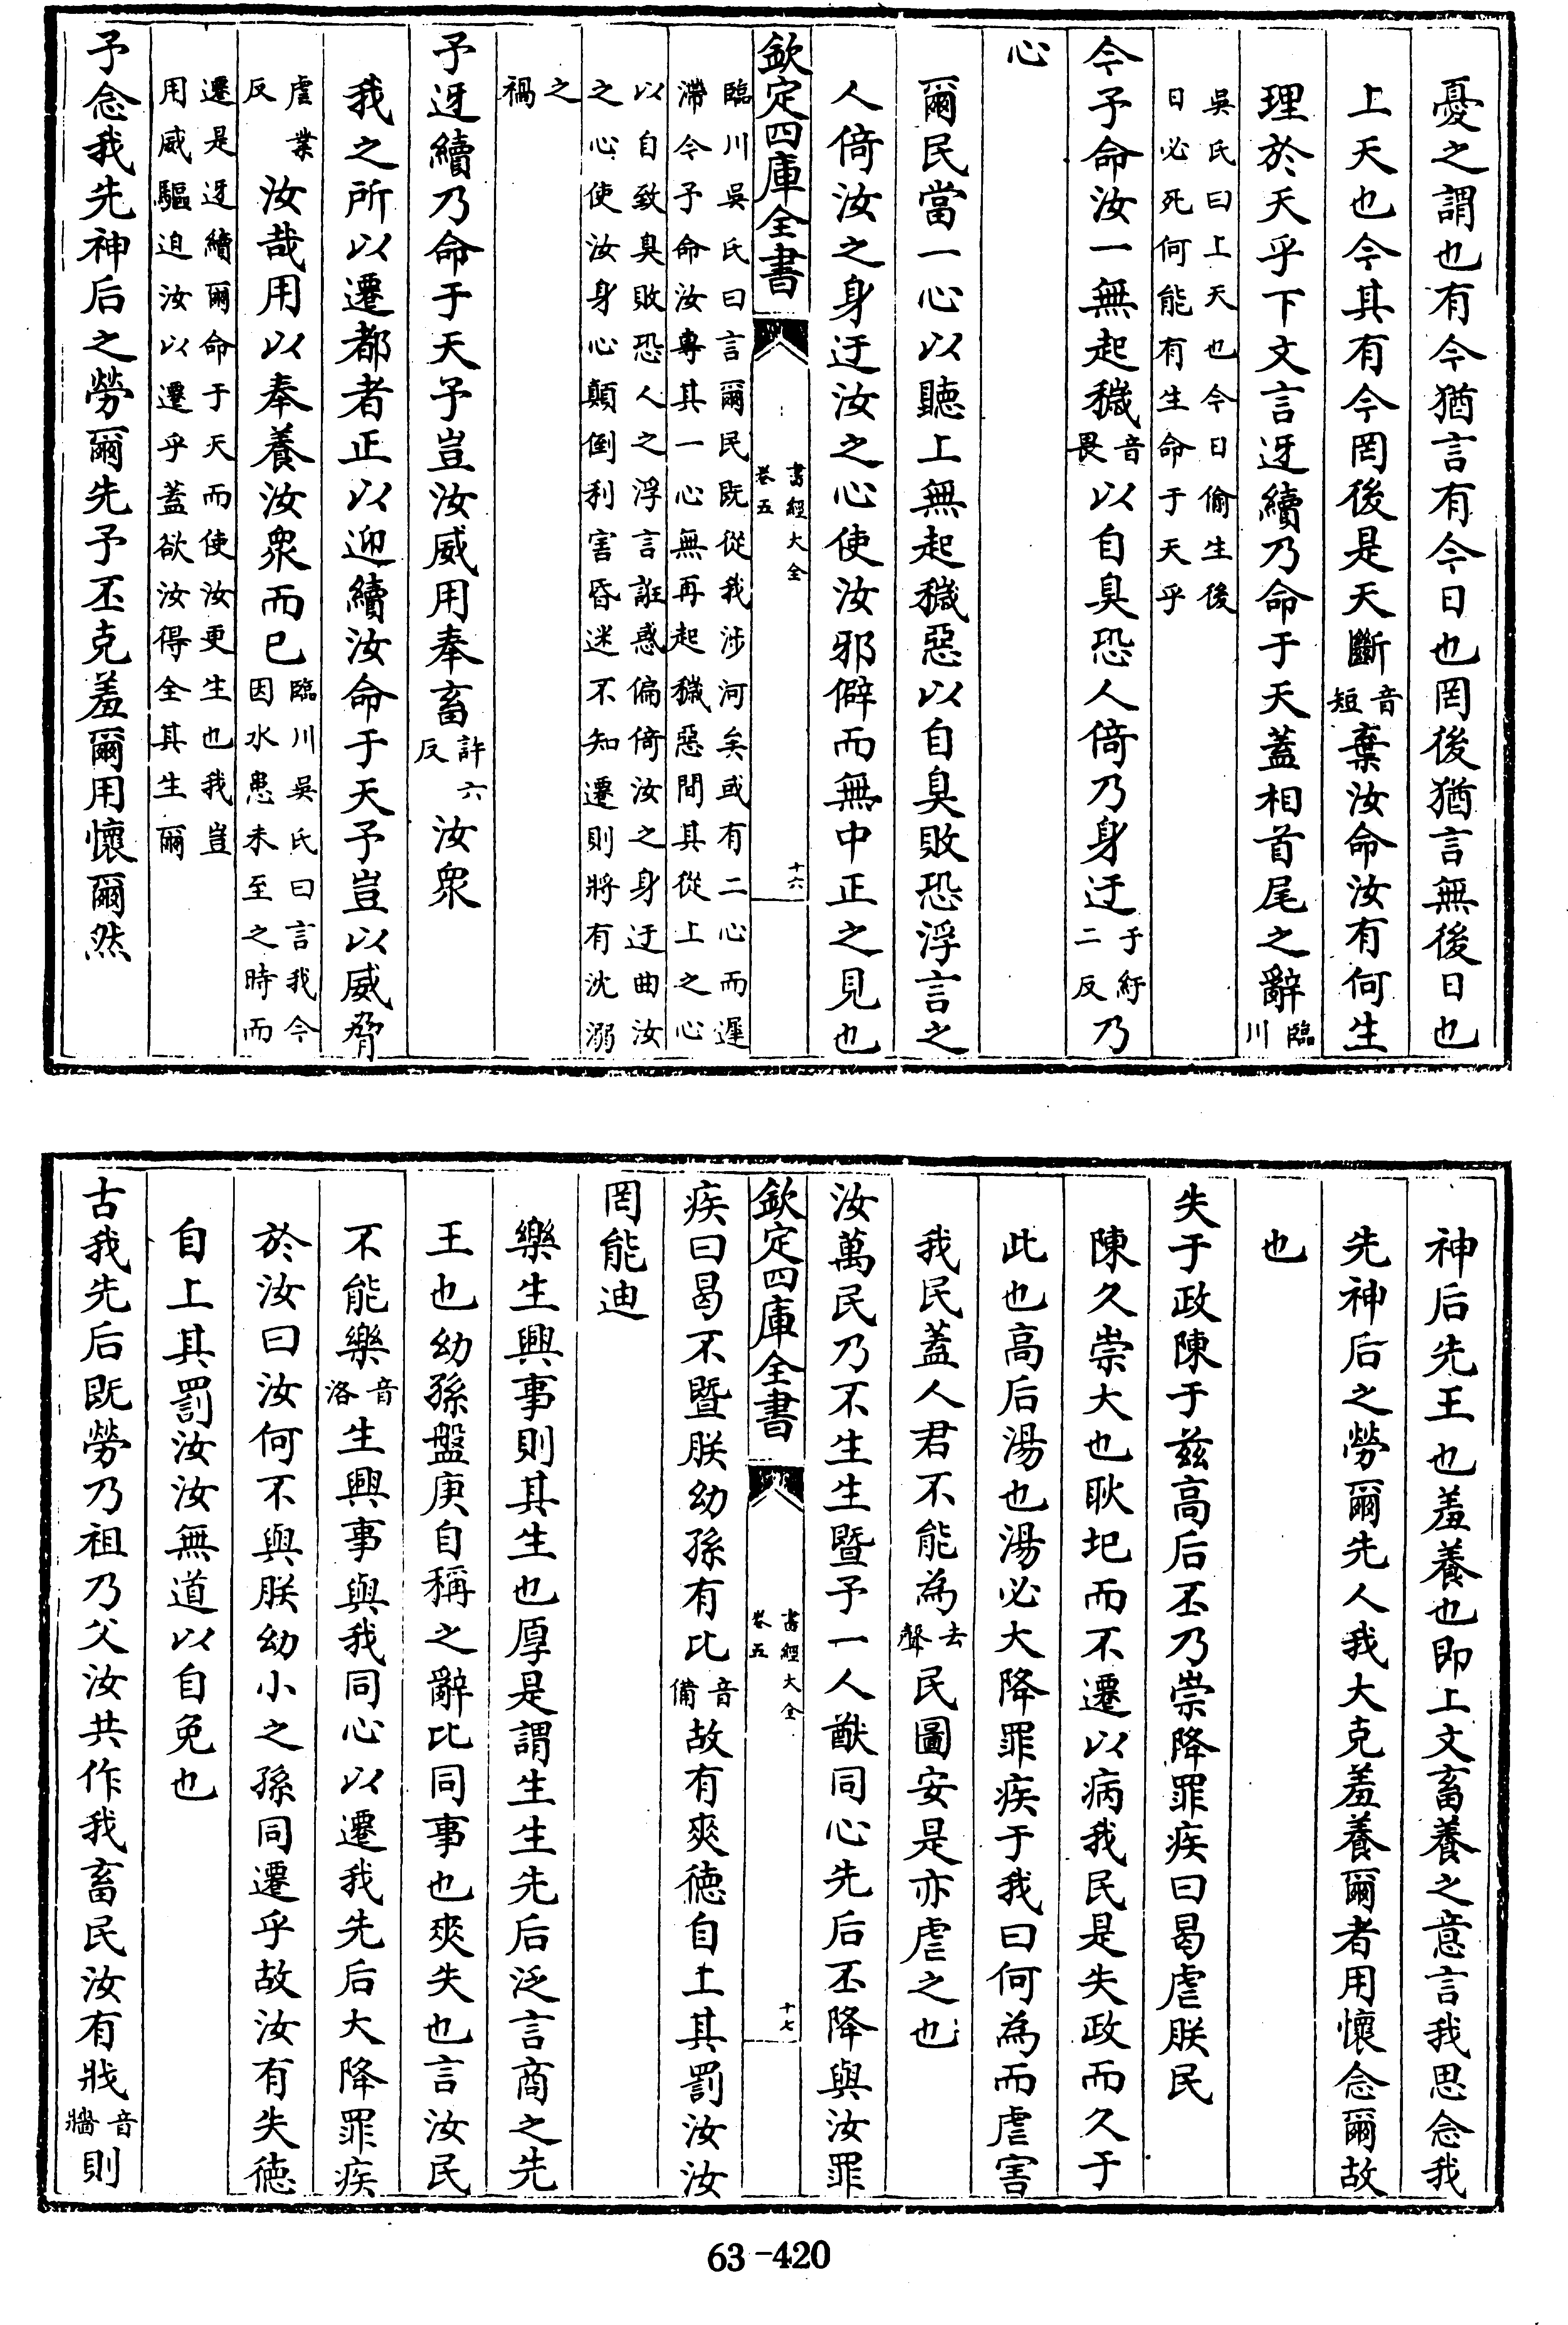 憂之謂也有今猶言有今日也罔後猶言無後日也
上天也今其有今罔後是天斷音短棄汝命汝有何生
理於天乎下文言迓續乃命于天蓋相首尾之辭臨川
吳氏曰上天也今日偷生後日必死何能有生命于天乎
今予命汝一無起穢音畏以自臭恐人倚乃身迂于紆二反乃
心
爾民當一心以聽上無起穢惡以自臭敗恐浮言之
人倚汝之身迂汝之心使汝邪僻而無中正之見也
欽定四庫全書 書經大全卷五 十六
臨川吳氏曰言爾民既從我涉河矣或有二心而遲
滯今予命汝專其一心無再起穢惡間其從上之心
以自致臭敗恐人之浮言誑惑偏倚汝之身迂曲汝
之心使汝身心顛倒利害昏迷不知遷則將有沈溺
之禍
予迓續乃命于天予豈汝威用奉畜許六反汝衆
我之所以遷都者正以迎續汝命于天予豈以威脅
虛業反汝哉用以奉養汝衆而已臨川吳氏曰言我今因水患未至之時而
遷是迓續爾命于天而使汝更生也我豈
用威驅迫汝以遷乎蓋欲汝得全其生爾
予念我先神后之勞爾先予丕克羞爾用懷爾然
神后先王也羞養也即上文畜養之意言我思念我
先神后之勞爾先人我大克羞養爾者用懷念爾故
也
失于政陳于兹高后丕乃崇降罪疾曰曷虐朕民
陳久崇大也耿圯而不遷以病我民是失政而久于
此也高后湯也湯必大降罪疾于我曰何為而虐害
我民蓋人君不能為去聲民圖安是亦虐之也
汝萬民乃不生生暨予一人猷同心先后丕降與汝罪
欽定四庫全書 書經大全卷五 十七
疾曰曷不暨朕幼孫有比音備故有爽德自上其罰汝汝
罔能迪
樂生興事則其生也厚是謂生生先后泛言商之先
王也幼孫盤庚自稱之辭比同事也爽失也言汝民
不能樂音洛生興事與我同心以遷我先后大降罪疾
於汝曰汝何不與朕幼小之孫同遷乎故汝有失德
自上其罰汝汝無道以自免也
古我先后既勞乃祖乃父汝共作我畜民汝有戕音牆則
63-420